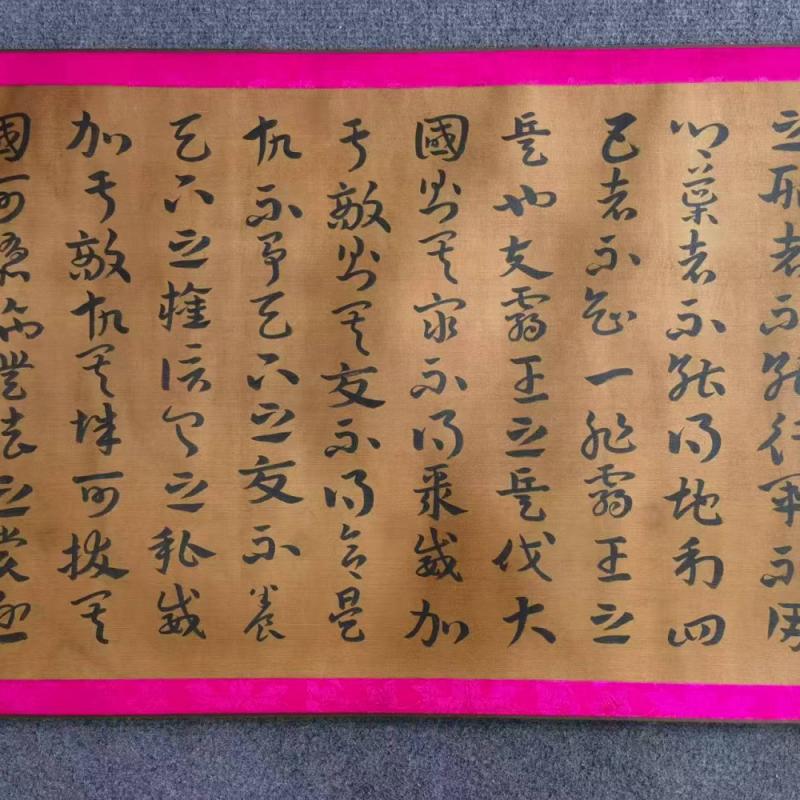 之形者不能行軍不用
鄉導者不能得地利四
五者不知一非霸王之
兵也夫霸王之兵伐大
國則其眾不得聚威加
于敵則其交不得合是
故不爭天下之交不養
天下之權信己之私威
加于敵故其城可拔其
國可隳施無法之賞懸